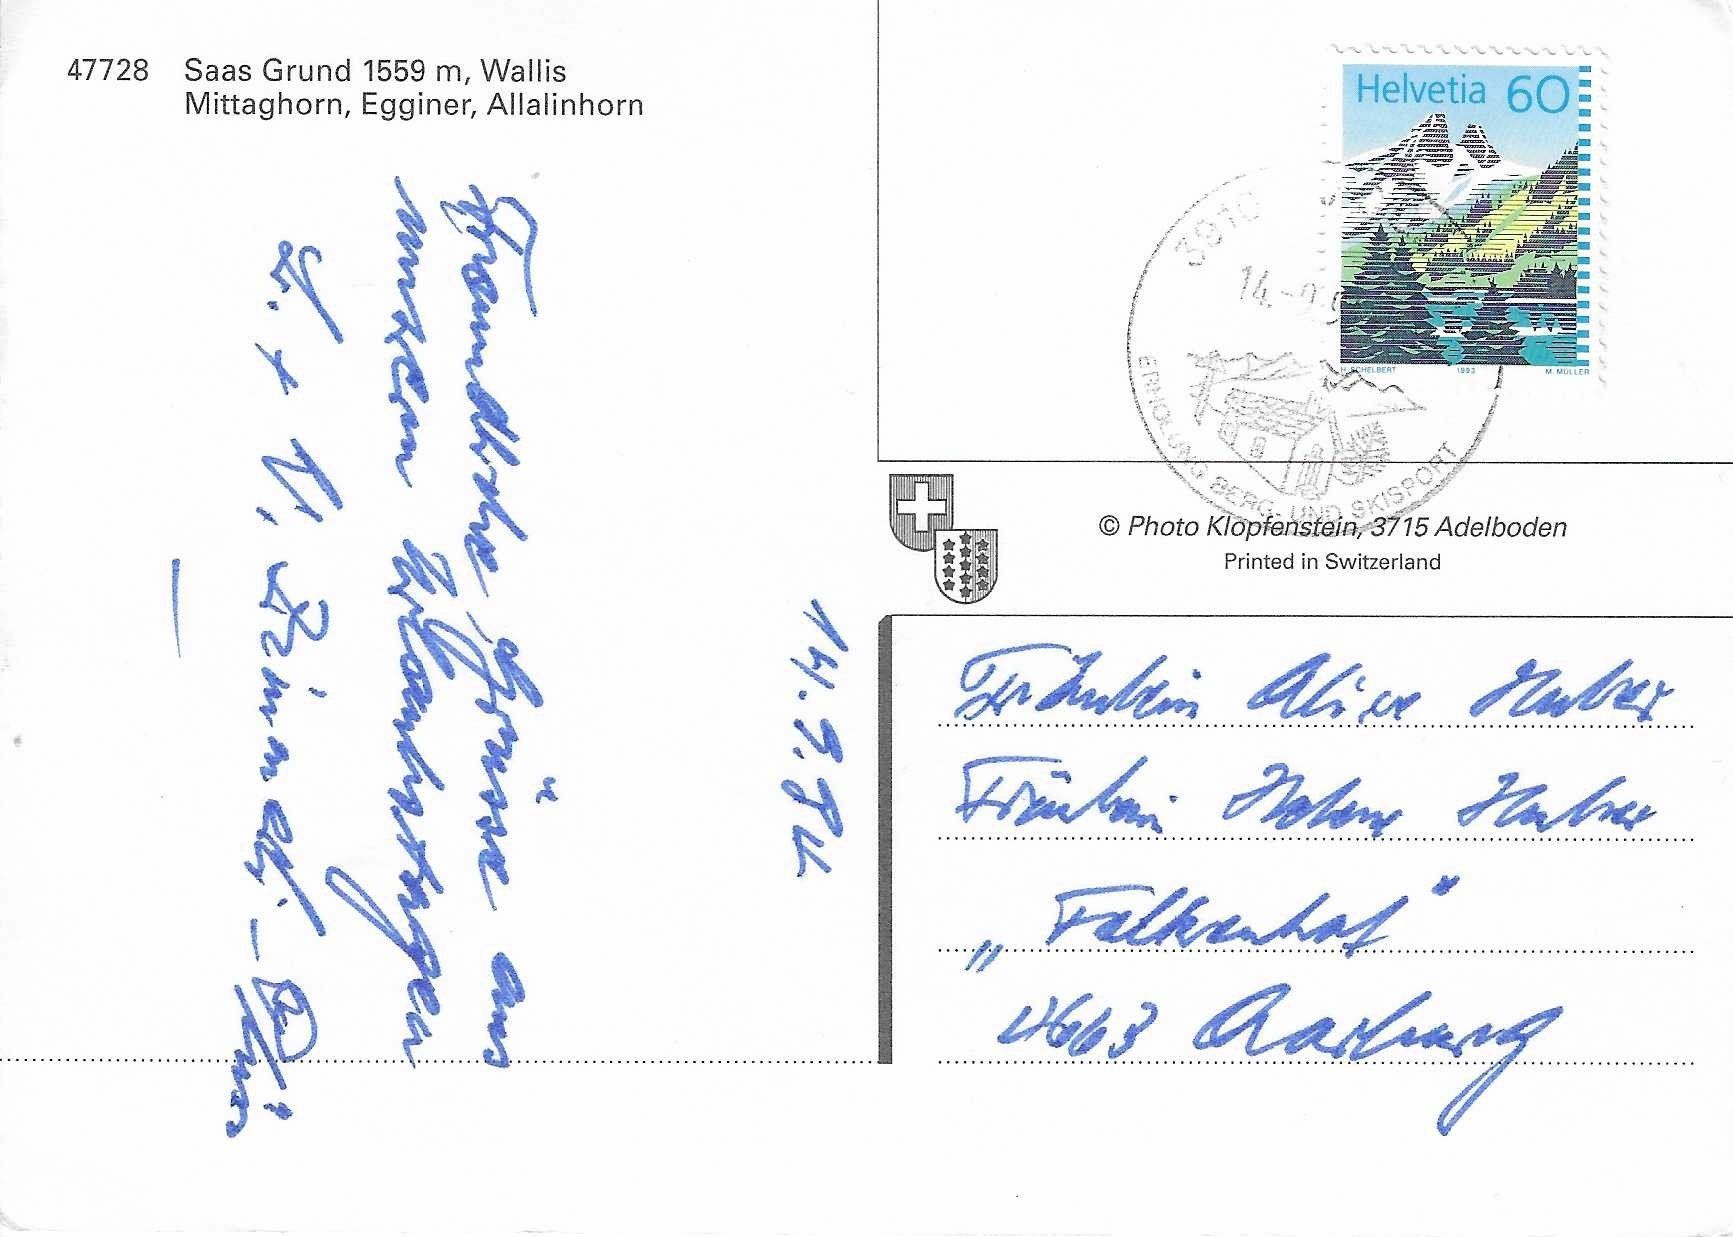 47728 Saas Grund 1559 m, Wallis
Mittaghorn, Egginer, Allalinhorn
Helvetia 60
H. SCHELBERT 1993 M. MÜLLER
3910
14.-9.9
ERHOLUNG BERG- UND SKISPORT
© Photo Klopfenstein, 3715 Adelboden
Printed in Switzerland
14.9.94
Freundliche Grüsse aus
unseren Urlaubstagen
Fräulein Alice Huber
Fräulein Helene Huber
„Falkenhof"
4663 Aarburg